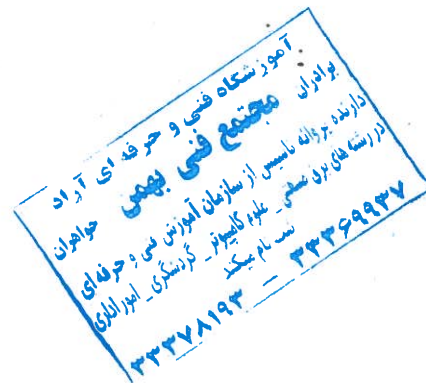 آموزشگاه فنی و حرفه ای آزاد
برادران مجتمع فنی بهمن خواهران
دارنده پروانه تاسیس از سازمان آموزش فنی و حرفه‌ای
در رشته های برق صنعتی _ علوم کامپیوتر _ گردشگری _ امور اداری
ثبت نام میکند
۳۳۳۷۸۱۹۳ - ۳۳۳۶۹۹۳۷